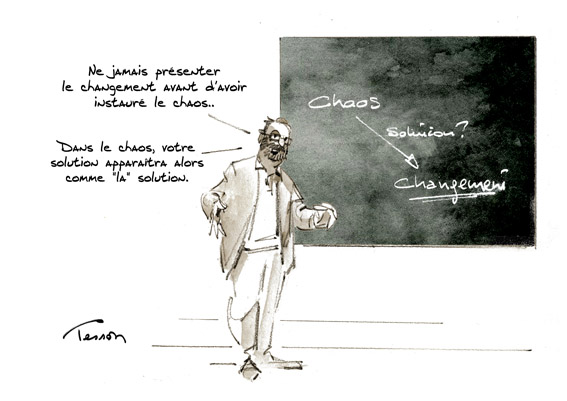 Ne jamais présenter
le changement avant d'avoir
instauré le chaos..
Dans le chaos, votre
solution apparaitra alors
comme "la" solution.
Chaos
solution?
Changement
Tesson